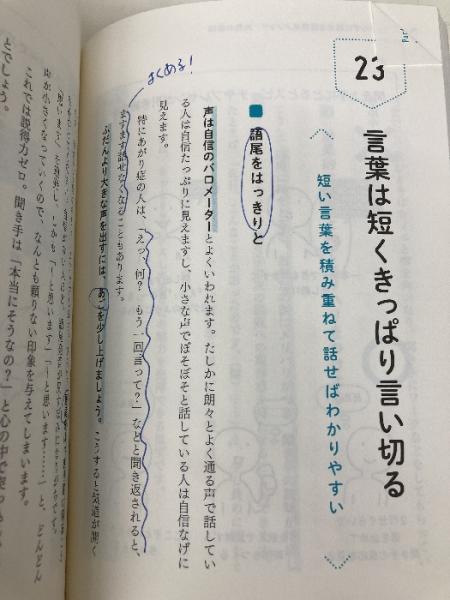 23
言葉は短くきっぱり言い切る
短い言葉を積み重ねて話せばわかりやすい
語尾をはっきりと
声は自信のバロメーターとよくいわれます。たしかに朗々とよく通る声で話してい
る人は自信たっぷりに見えますし、小さな声でぼそぼそと話している人は自信なげに
見えます。
よくある!
特にあがり症の人は、「えっ、何? もう一回言って?」などと聞き返されると、
ますます話せなくなることもあります。
ふだんより大きな声を出すには、あごを少し上げましょう。こうすると気道が開く
と思います……」と、どんどん
声が小さくなっていくので、なんとも頼りない印象を与えてしまいます。
これでは説得力ゼロ。聞き手は「本当にそうなの?」と心の中で
とでしょう。